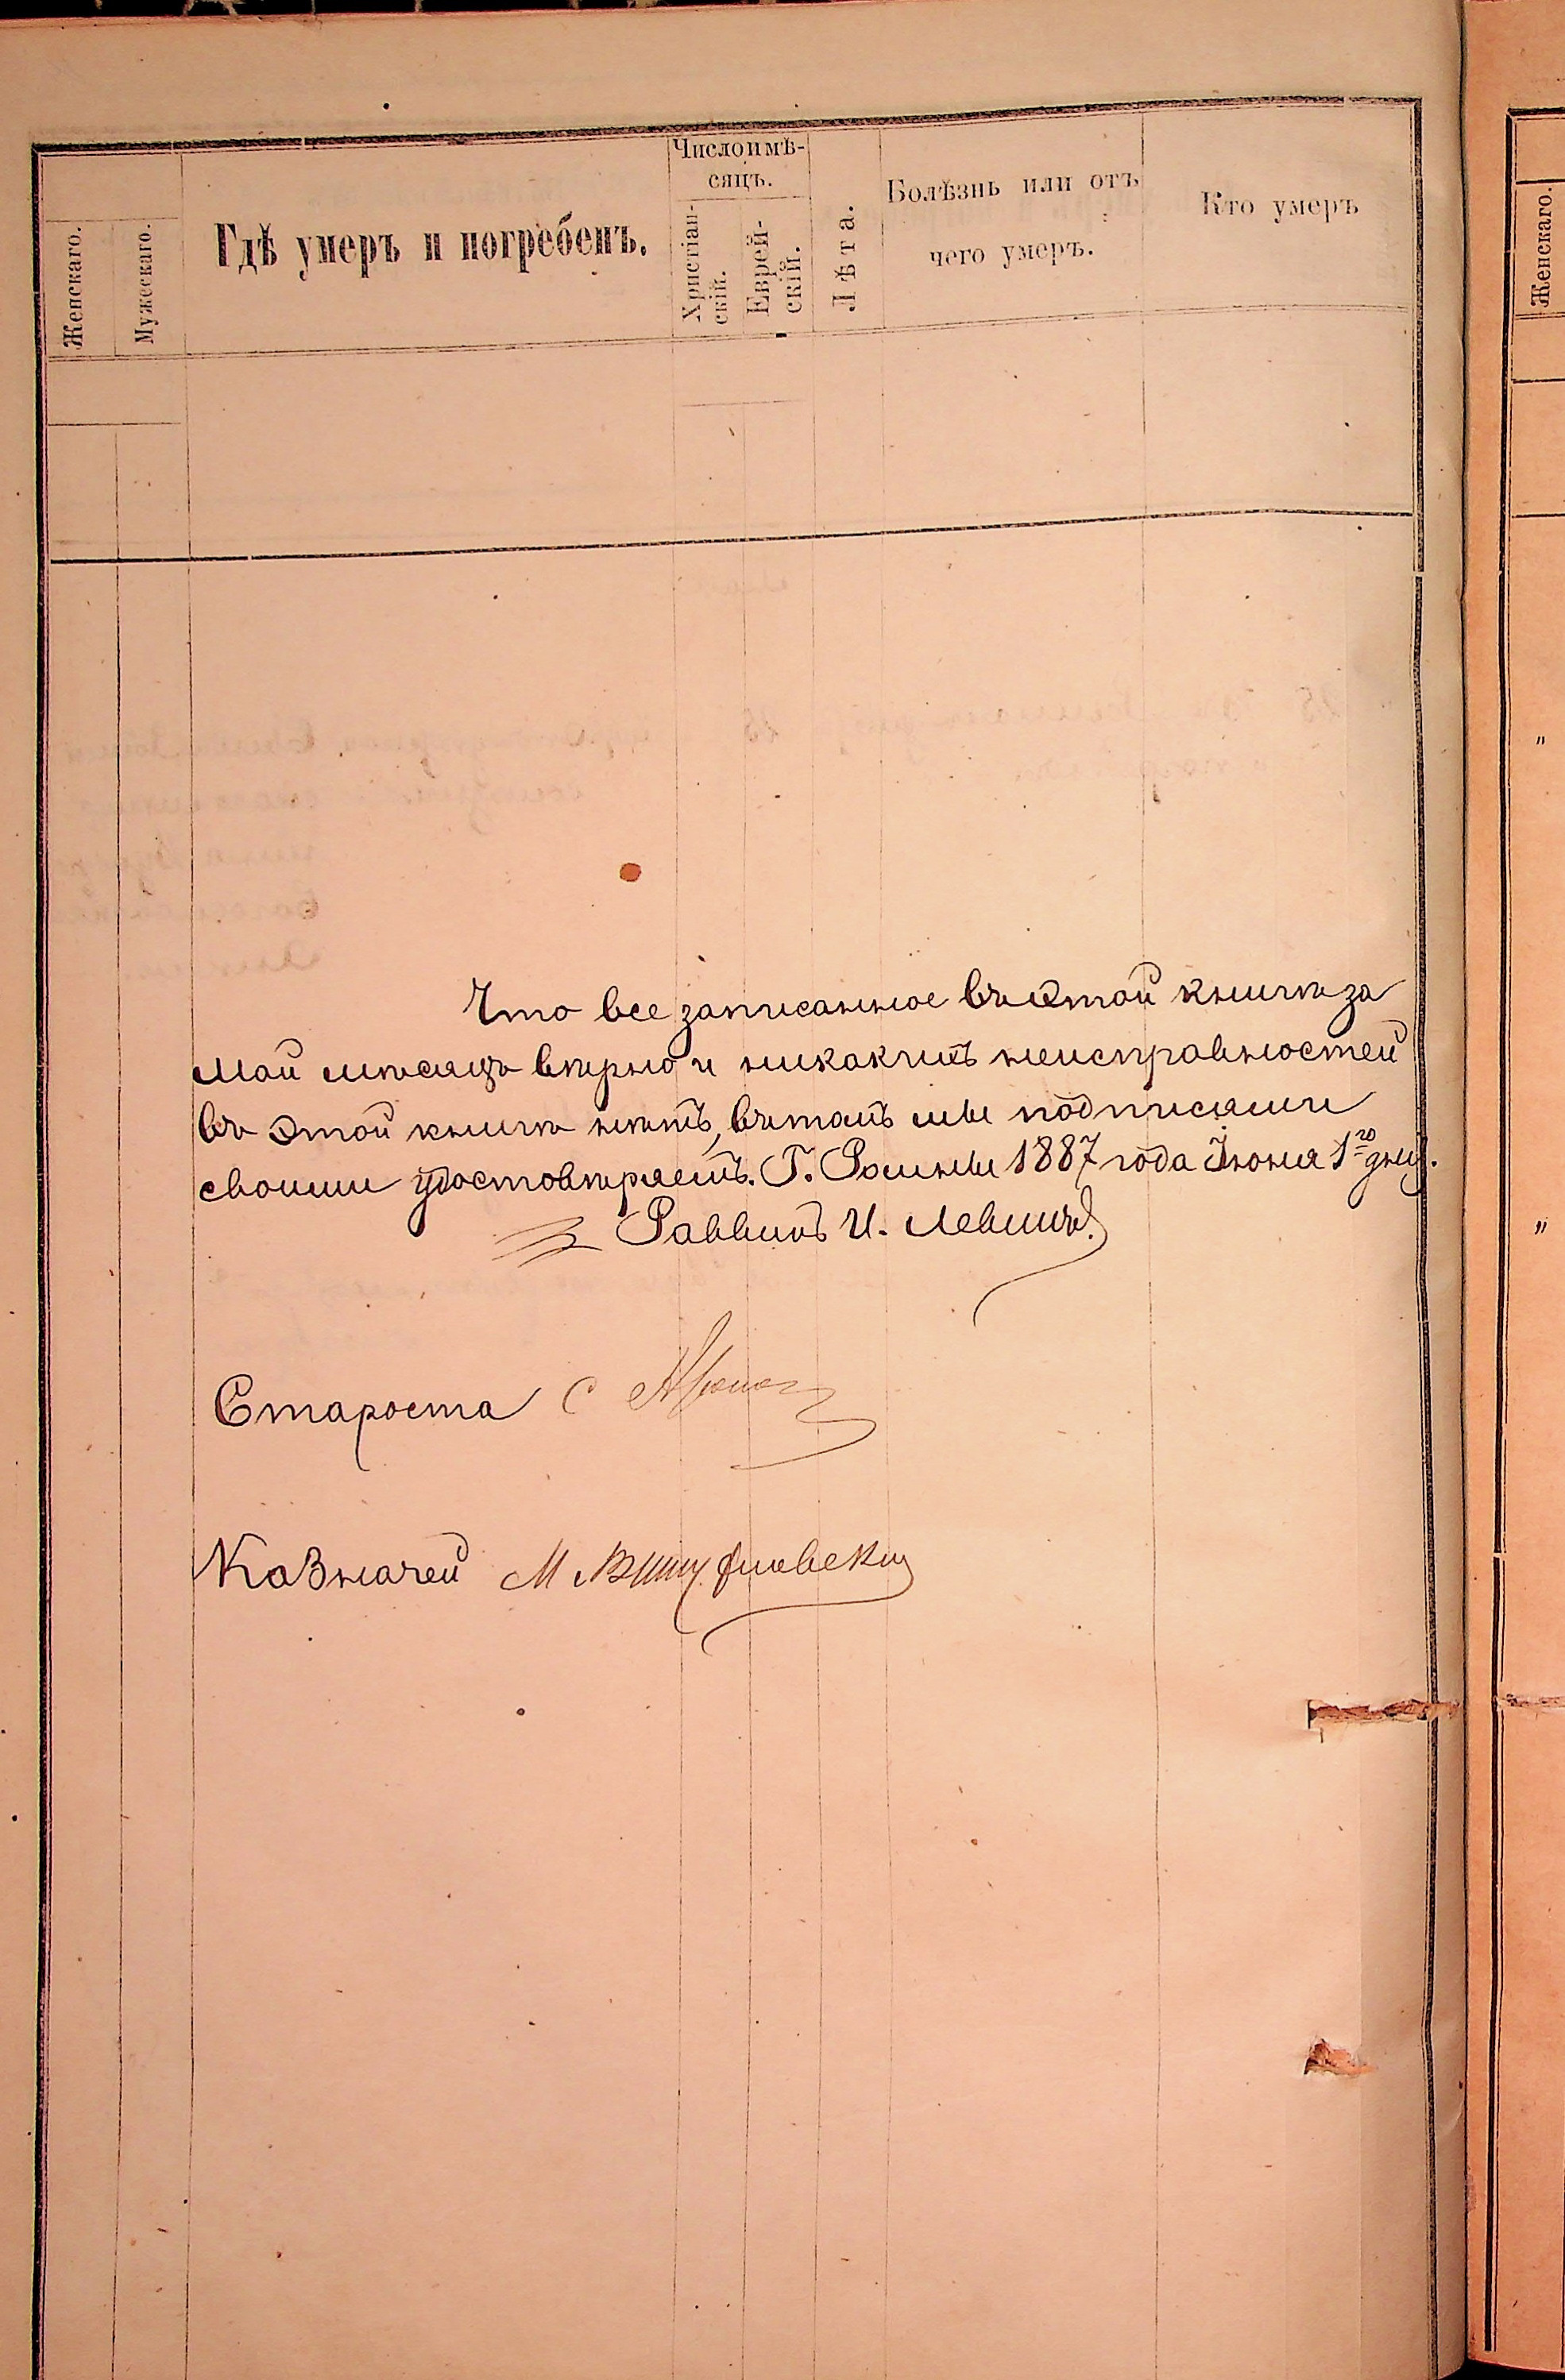 Женскаго.
Мужескаго.
Гдѣ умеръ и погребенъ.
Число и мѣ-
сяцъ.
Христіан-
скій.
Еврей-
скій.
Лѣта.
Болѣзнь или отъ
чего умеръ.
Кто умеръ
Что все записанное въ этой книгѣ за
Май мѣсяцъ вѣрно и никакихъ неисправностей
въ этой книгѣ нѣтъ, въ томъ мы подписями
своими удостовѣряемъ. Г. Ромны 1887 года Іюня 1го дня.
Раввинъ И. Левинъ
Староста С
Казначей М
Женскаго.
"
"